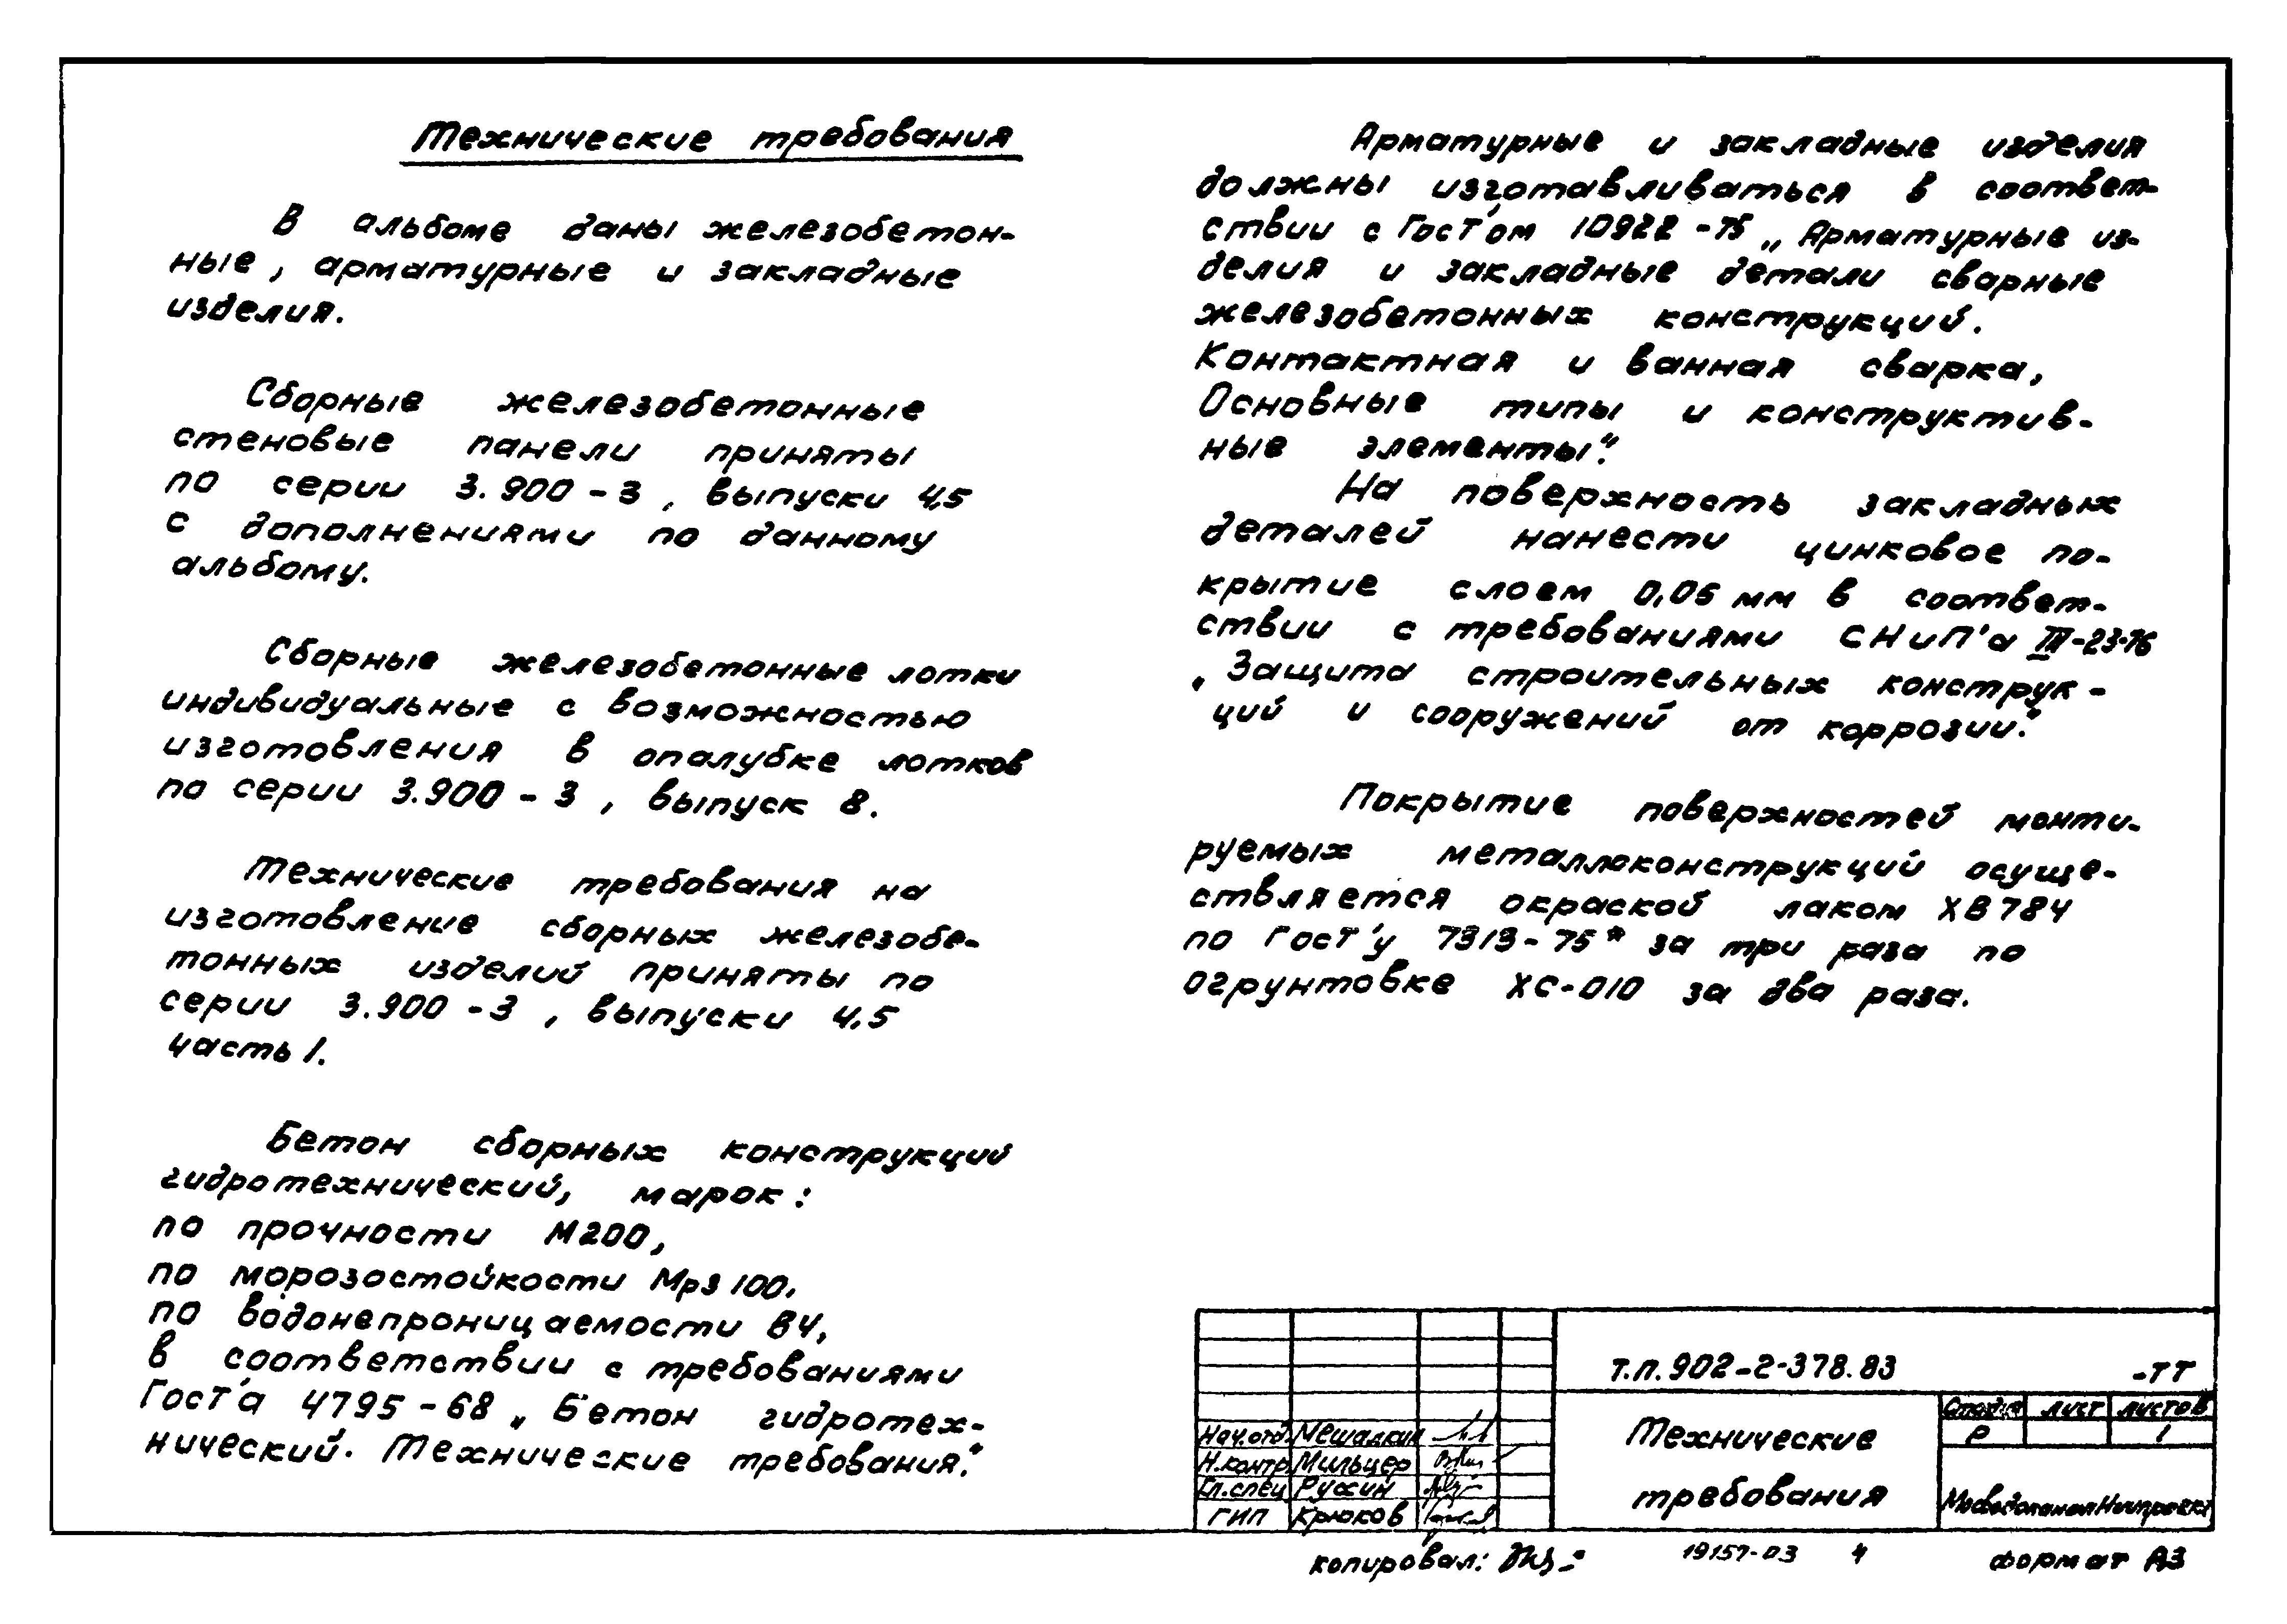 Технические требования
В альбоме даны железобетон-
ные, арматурные и закладные
изделия.
Сборные железобетонные
стеновые панели приняты
по серии 3.900-3, выпуски 4,5
с дополнениями по данному
альбому.
Сборные железобетонные лотки
индивидуальные с возможностью
изготовления в опалубке лотков
по серии 3.900-3, выпуск 8.
Технические требования на
изготовление сборных железобе-
тонных изделий приняты по
серии 3.900-3, выпуски 4,5
часть 1.
Бетон сборных конструкций
гидротехнический, марок:
по прочности М200,
по морозостойкости Мрз 100,
по водонепроницаемости В4,
в соответствии с требованиями
Гост'а 4795-68 „Бетон гидротех-
нический. Технические требования."
Арматурные и закладные изделия
должны изготавливаться в соответ-
ствии с ГосТ'ом 10922-75 „Арматурные из-
делия и закладные детали сварные
железобетонных конструкций.
Контактная и ванная сварка,
Основные типы и конструктив-
ные элементы".
На поверхность закладных
деталей нанести цинковое по-
крытие слоем 0,05 мм в соответ-
ствии с требованиями СНиП'а III-23-76
„Защита строительных конструк-
ций и сооружений от коррозии."
Покрытие поверхностей монти-
руемых металлоконструкций осуще-
ствляется окраской лаком ХВ 784
по ГосТ'у 7313-75* за три раза по
огрунтовке ХС-010 за два раза.
т.п. 902-2-378.83 -ТТ
Стадия лист листов
Р 1
Технические
требования
МосводоканалНиипроект
Нач.отд. Мешалкин
Н.контр. Мильцер
Гл.спец. Русин
ГИП Крюков
копировал:
19157-03 4
формат А3